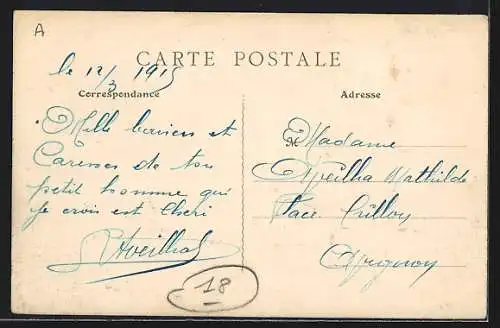 A
CARTE POSTALE
le 12/3 1915
Correspondance
Adresse
Mille baisers et
Caresses de ton
petit homme qui
je crois est Cheri
Aveilha
M
Madame
Aveilha Mathilde
Place Crillon
Avignon
18